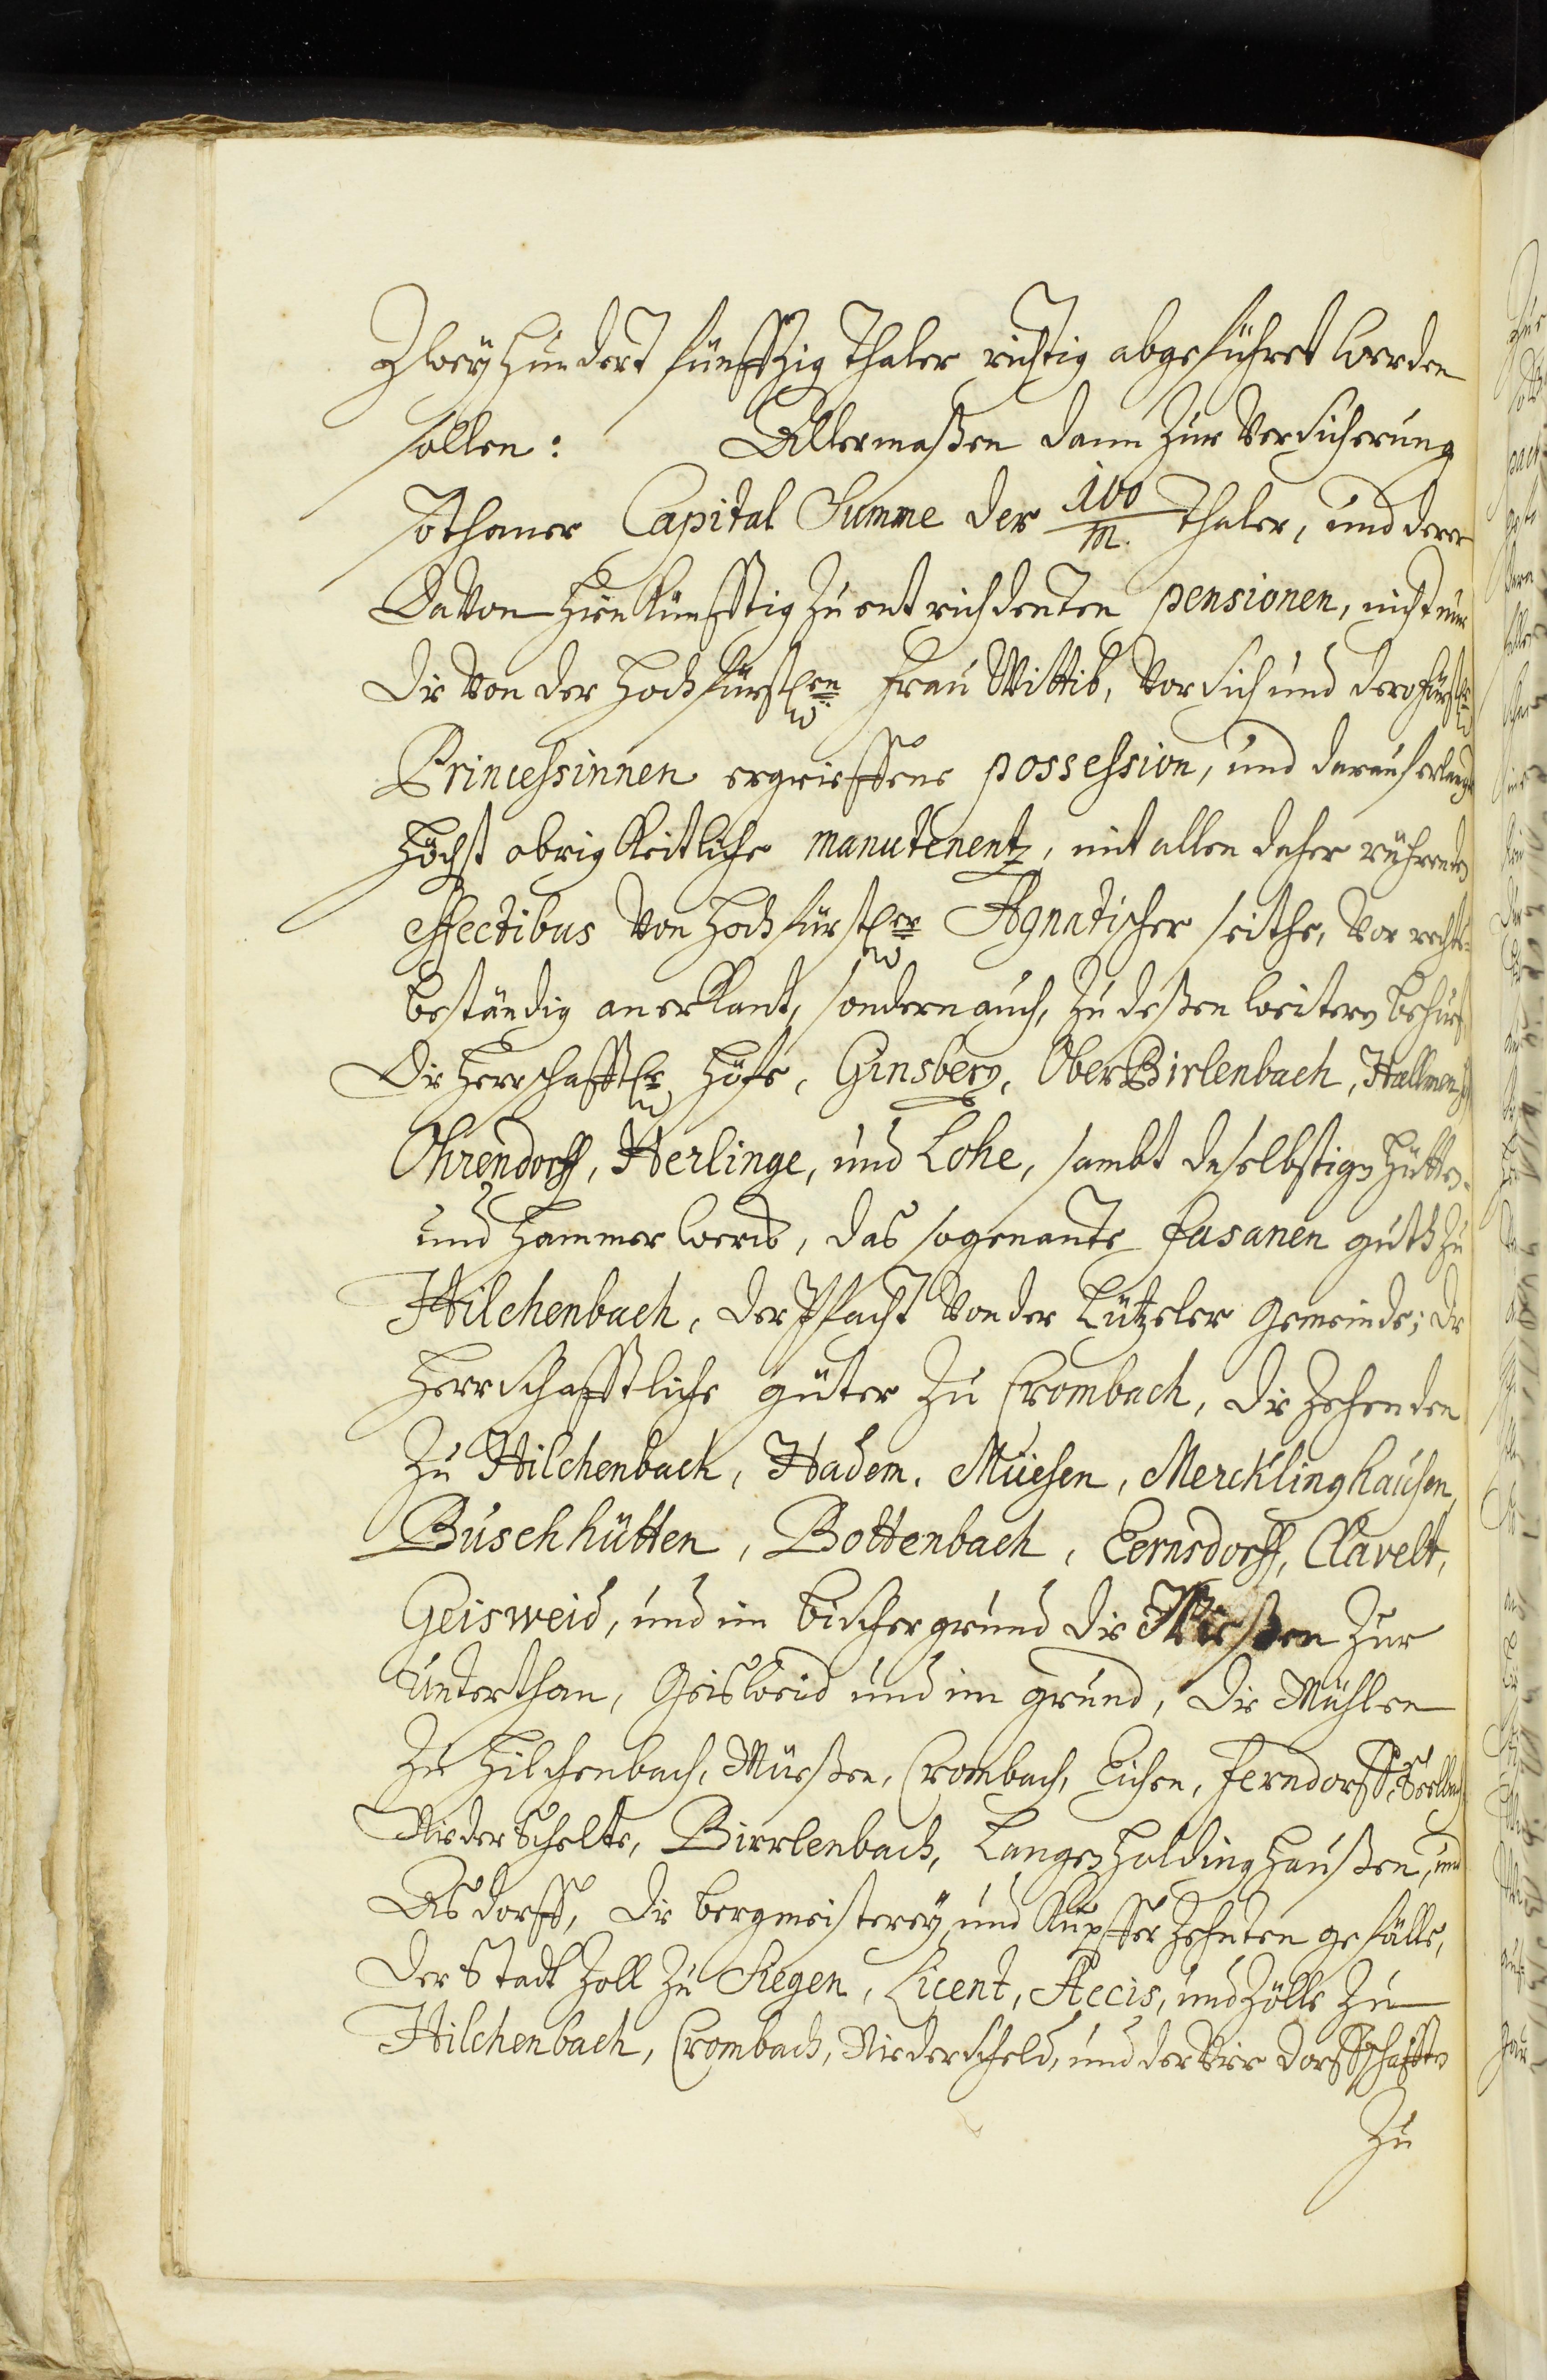 Zwey hundert fünffzig thaler richtig abgeführet werden
sollen: Allermaßen dann zur Versicherung
sothaner Capital Summe der 100/m. thaler, und derer
davon hinkünfftig zu entrichdenten pensionen, nicht nur
die von der hochfürstlen Frau Wittib, vor sich und dero fürstle
Princessinnen ergrieffene possession, und darauf erlangte
höchst obrigkeitliche manutenentz, mit allen daher rührenden
effectibus von hochfürstler Agnatischer seithe, vor rechts-
beständig anerkant, sondern auch, zu deßen weitern behuef
die herrschafftle höfe, Ginsberg, Ober Birlenbach,
Ohrendorff, Herlinge, und Lohe, sambt daselbstigen hütten-
und hammerwerck, das sogenante Fasanen guth zu
Hilchenbach, der Pfacht von der Lützeler gemeinde; die
herrschafftliche güter zu Crombach, die zehenden
zu Hilchenbach, Hadem, Müesen, Mercklinghausen,
Buschhütten, Bottenbach, Eernsdorff, Clavelt,
Geisweid, und im bischergrund die Wießen zur
Unterthan, Geisweid und im grund, die Mühlen
zu Hilchenbach, Müeßen, Crombach, Eichen, Ferndorff, Seelbach
Niderschelte, Birrlenbach, Langenholdinghaußen, und
Asdorff, die bergmeisterey und Kupffer Zehnten gefälle,
der Stadt Zoll zu Siegen, Licent, Accis, und Zölle zu
Hilchenbach, Crombach, Niederscheld, und der vier dorffschafften
zu